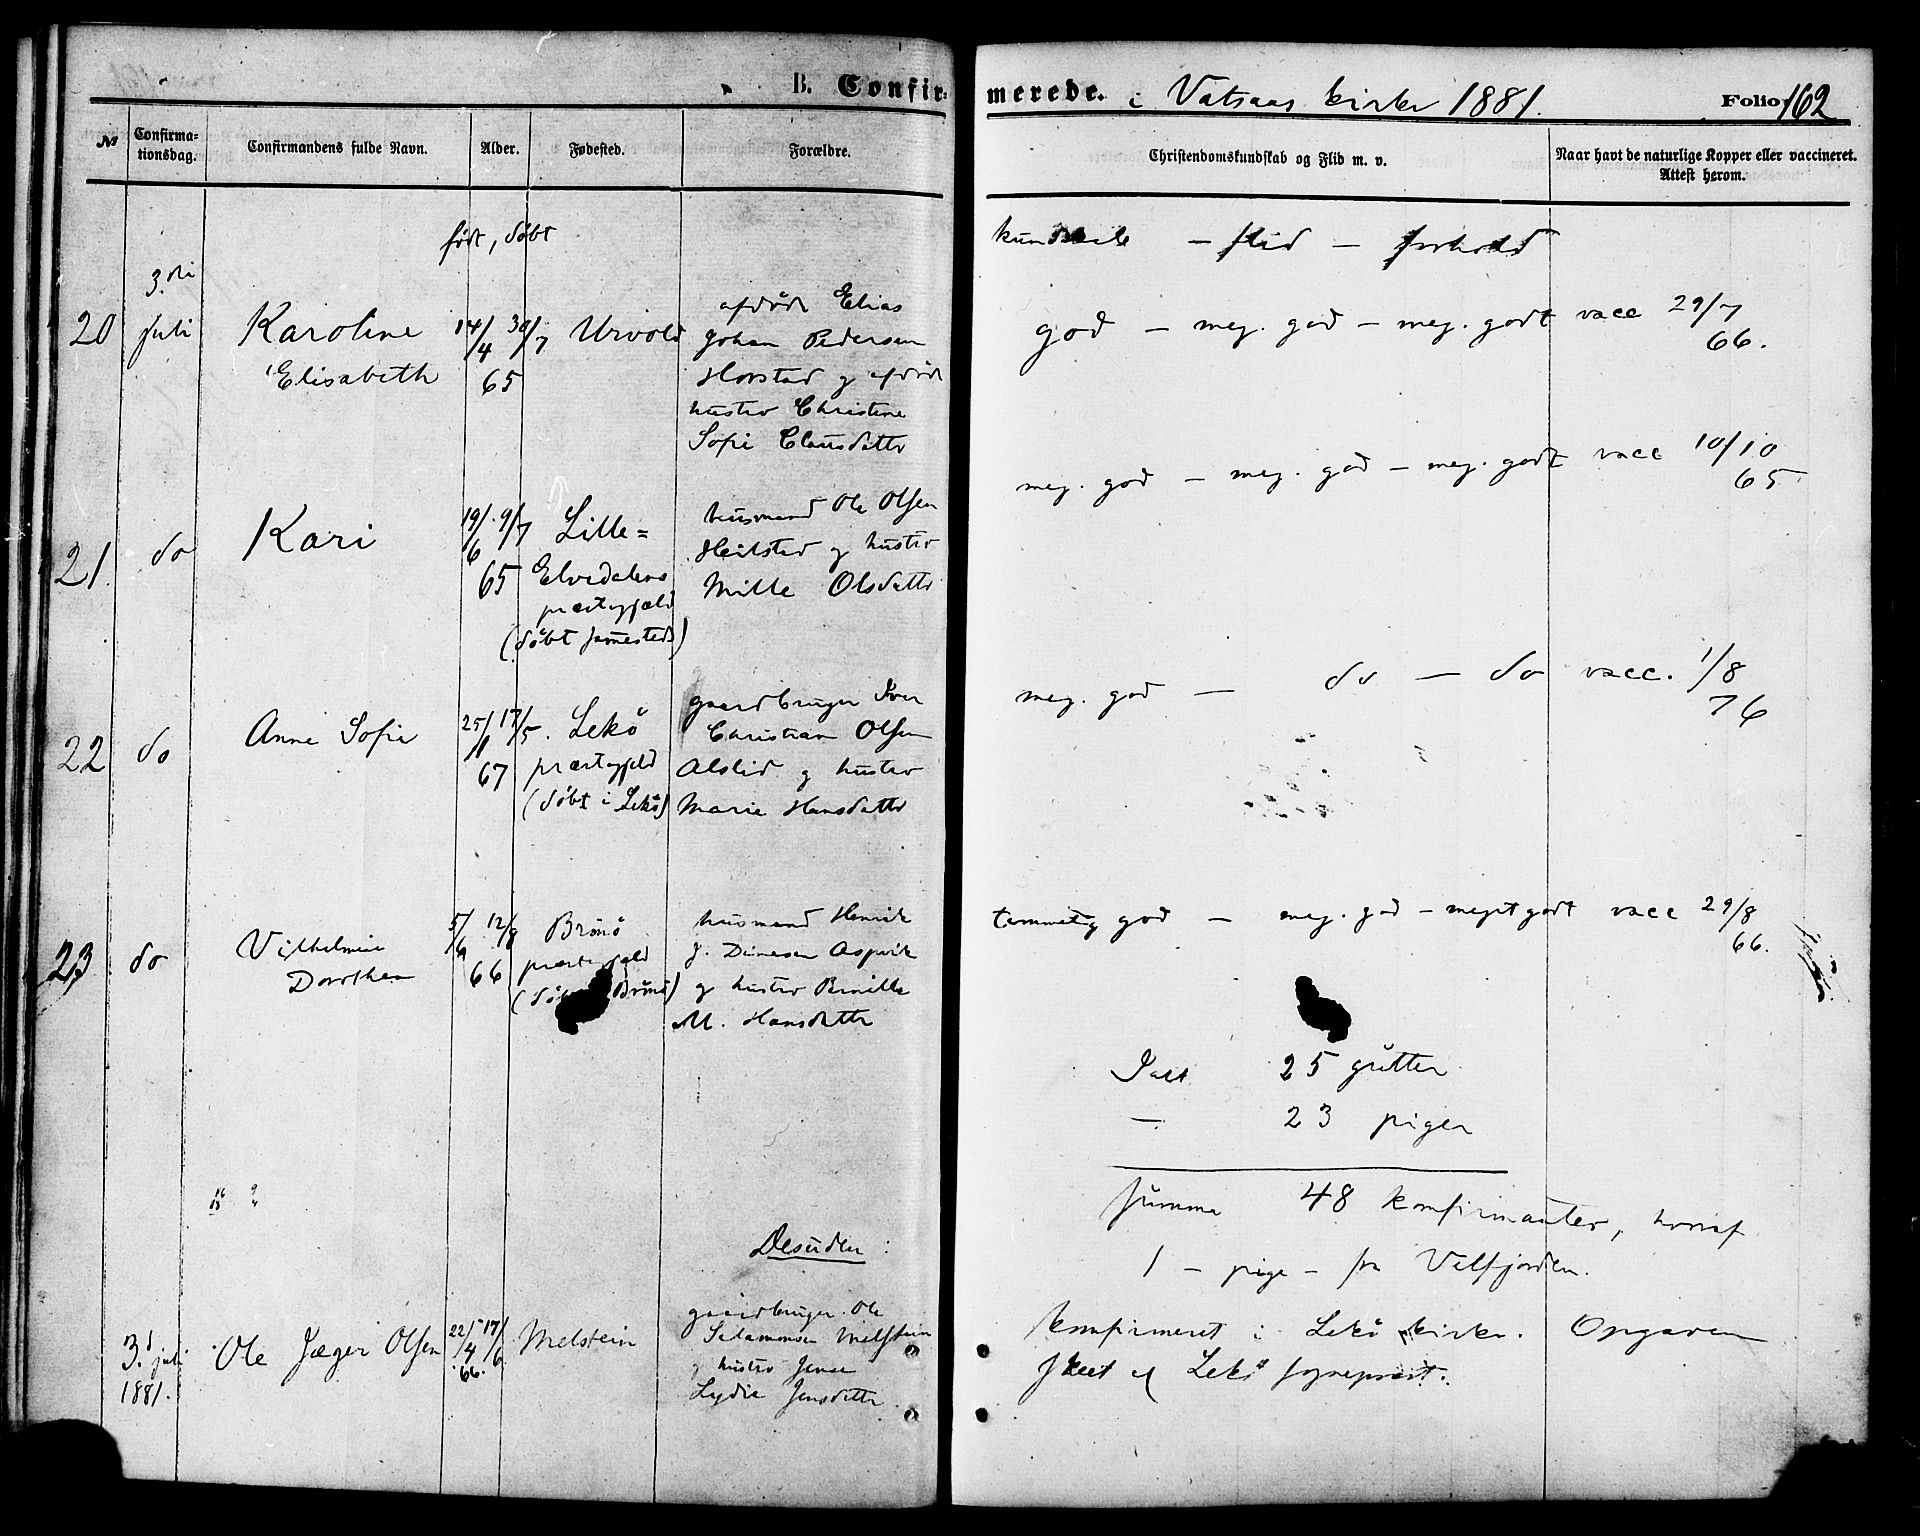 B. Confir-
merede. i Vatsaas kirke 1881. Folio 162
No
Confirma-
tionsdag.
Confirmandens fulde Navn.
Alder.
Fødested.
Forældre.
Christendomskundskab og Flid m. v.
Naar havt de naturlige Kopper eller vaccineret.
Attest herom.
født, døbt
kundskab - flid - forhold
20
3.die
juli
Karoline
Elisabeth
14/4 30/7
65
Urvold
afdøde Elias
Johan Pedersen
Horstad og afdøde
hustro Christine
Sofie Clausdatter
god - meg. god - meg. godt vacc 29/7
66.
21.
do
Kari
19/6 9/7
65
Lille=
Elvedalens
præstegjæld
(døbt sammesteds)
husmand Ole Olsen
Heilstad og hustro
Mille Olsdatter
meg. god - meg. god - meg. godt vacc 10/10
65
22
do
Anne Sofie
25/1 17/5
67
Lekø
præstegjeld
(døbt i Lekø)
gaardbruger Iver
Christian Olsen
Alslid og hustro
Marie Hansdatter
meg. god - do - do vacc. 1/8
76
23
do
Vilhelmine
Dorothea
5/6 12/8
66
Brønø
præstegjeld
Brønø)
husmand Henrik
J. Dinesen Aspvik
og hustro Bernille
M. Hansdatter
temmelig god - meg. god - meget godt vacc 29/8
66.
Ialt 25 gutter
- 23 piger
Summa 48 konfirmanter, hvoraf
1 - pige - fra Velfjorden.
Desuden:
3.d juli
1881.
Ole Jæger Olsen
22/4 17/6
66.
Melstein
gaardbruger Ole
Salamonsen Melstein
og hustro Jense
Lydie Jensdatter
Konfirmeret i Lekø kirke. Opgaven
skeet af Lekø sognepræst.